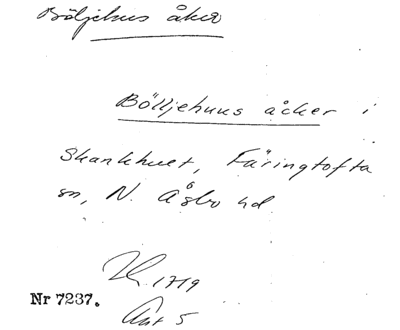 Böljehus åker
Bölljehuus åcker i
Skankhuet, Färingtofta
sn, N. Åsbo hd.
LR. 1719
Nr 7237.
Akt 5